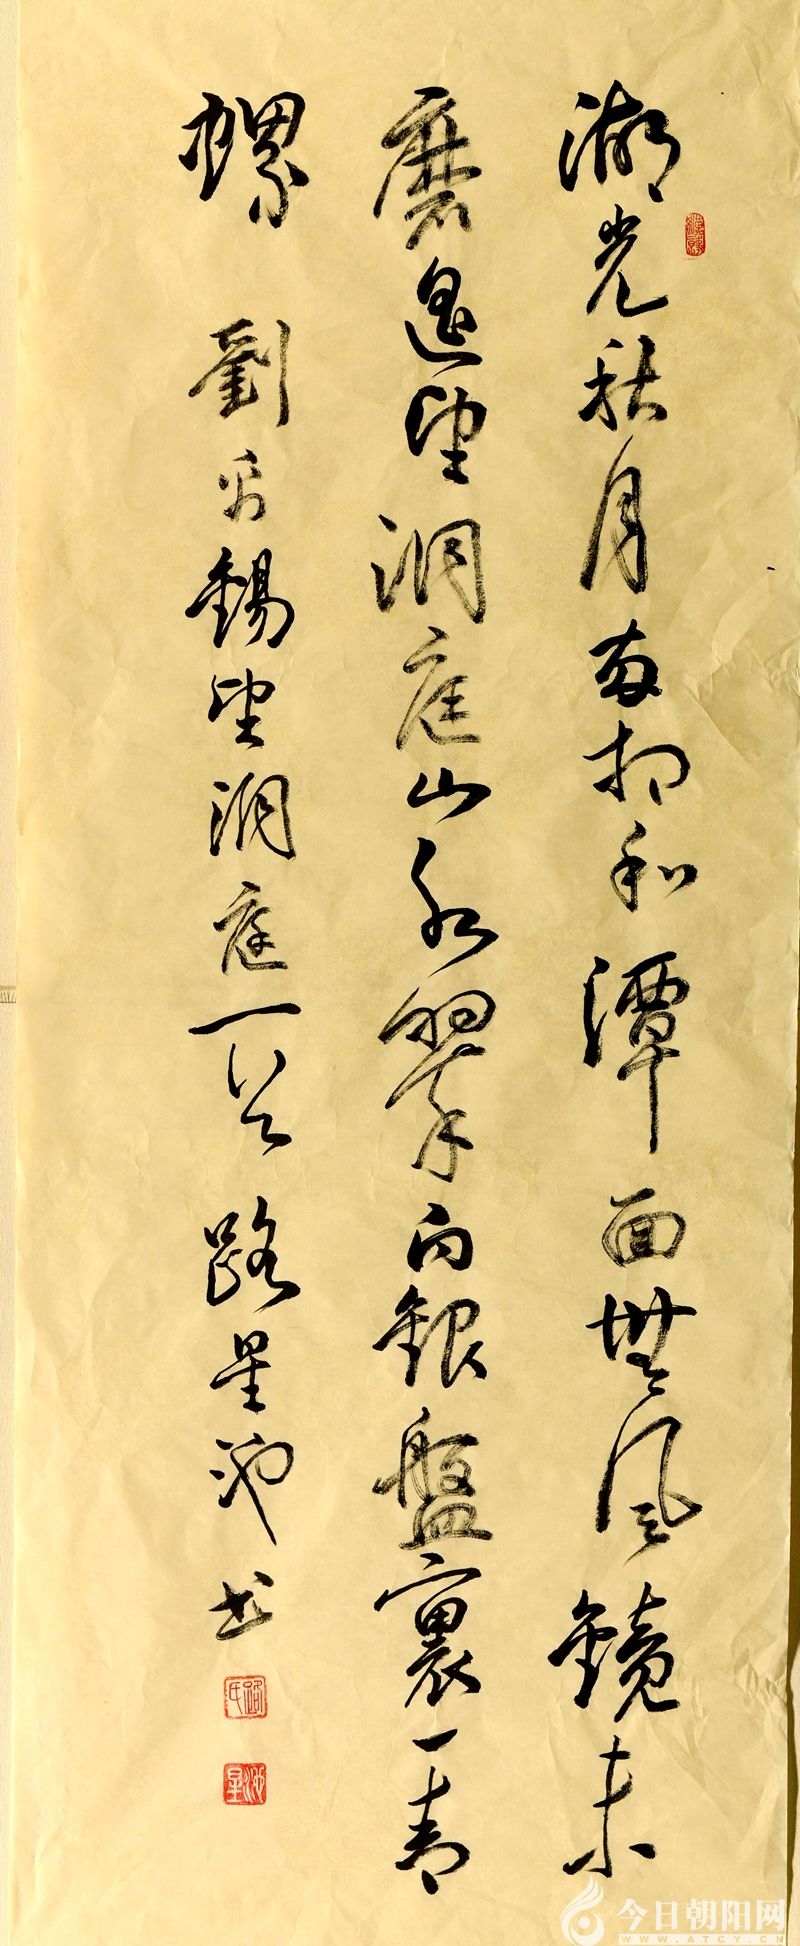 湖光秋月兩相和潭面無風鏡未
磨遙望洞庭山水翠白銀盤裏一青
螺 劉禹錫望洞庭一首 路星池書
路氏
星池
今日朝阳网
WWW.ATCY.CN